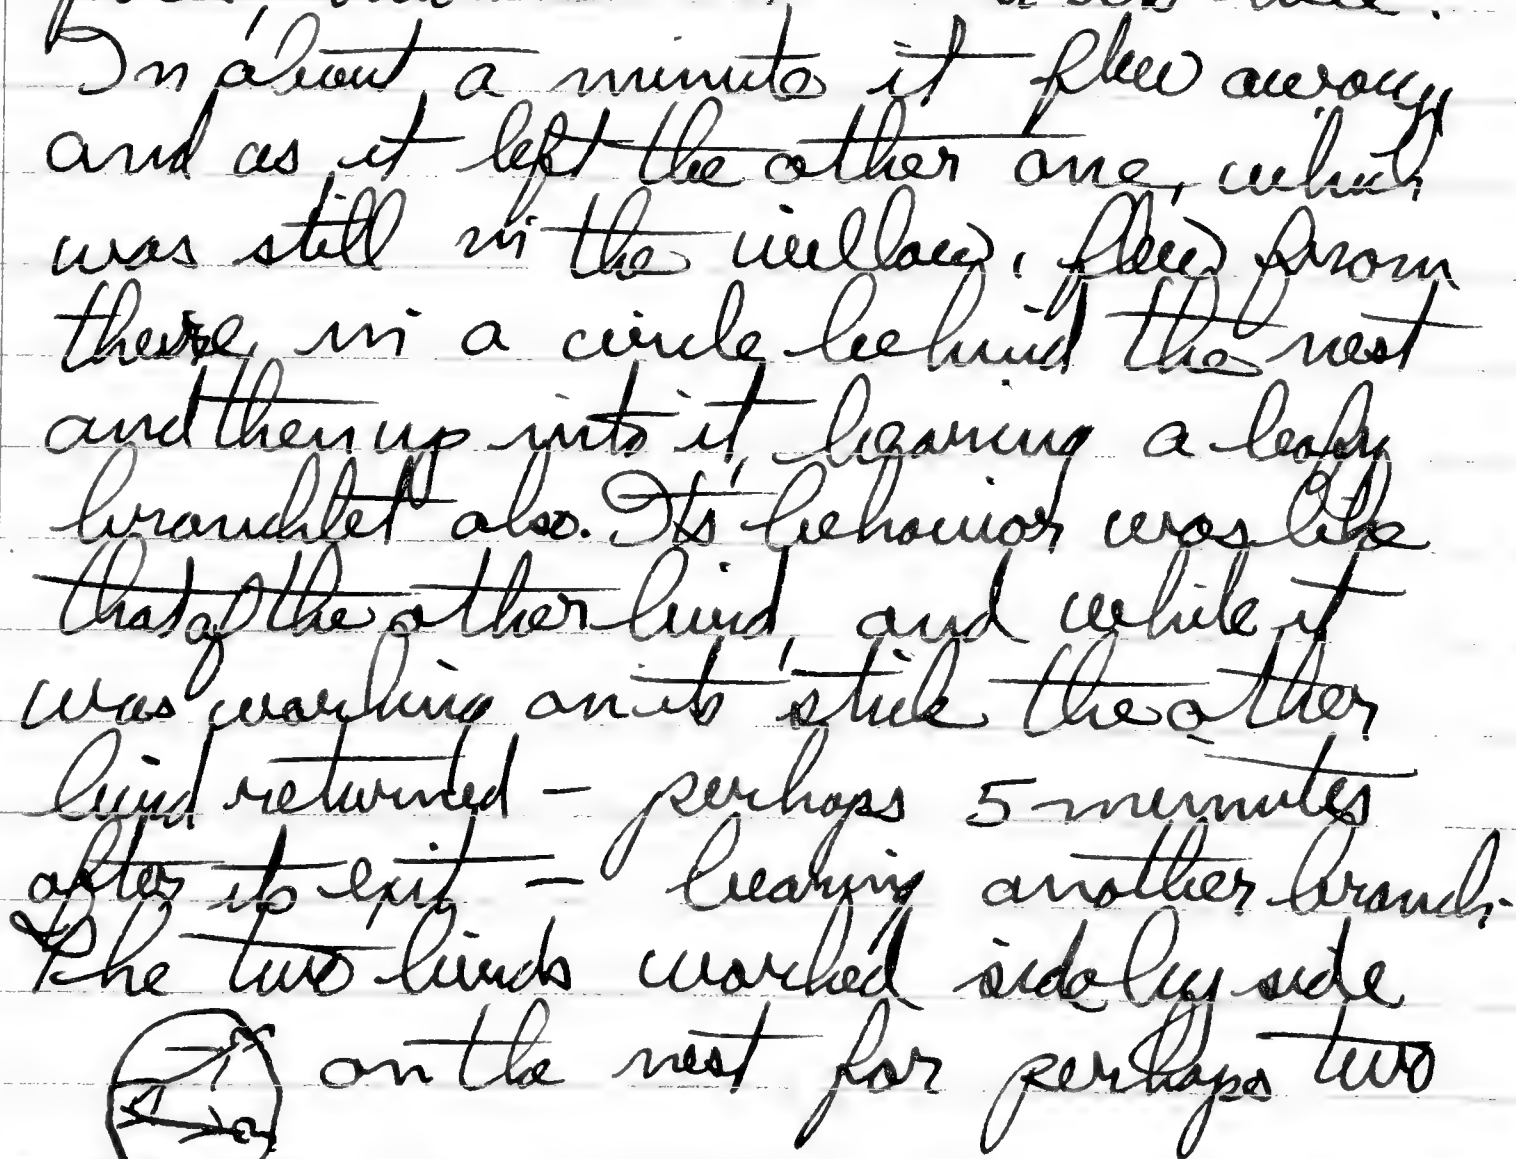 In about a minute it flew away,
and as it left the other one, which
was still in the willow, flew from
there, in a circle behind the nest
and then up into it, bearing a leafy
branchlet also. Its behavior was like
that of the other bird, and while it
was working on its stick the other
bird returned – perhaps 5 minutes
after its exit – bearing another branch.
The two birds worked side by side
on the nest for perhaps two